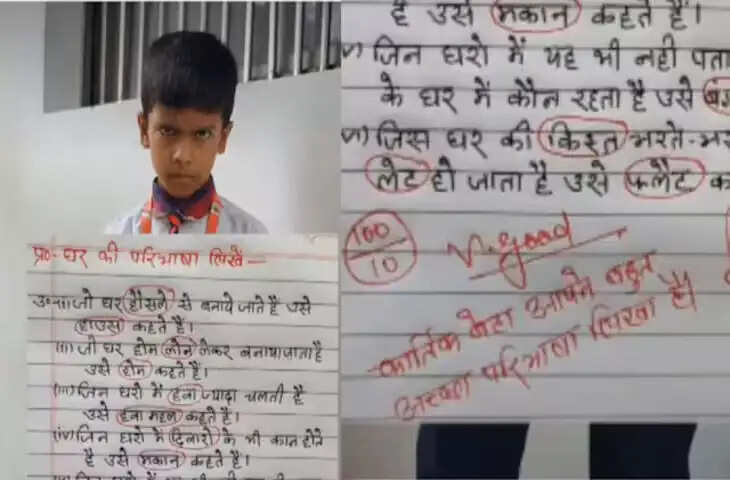 प्र०- घर की परिभाषा लिखें —
उ०-(i) जो घर हौसले से बनाये जाते है उसे
हाउस कहते हैं।
(ii) जो घर होम लोन लेकर बनाया जाता है
उसे होम कहते हैं।
(iii) जिन घरो में हवा ज्यादा चलती है
उसे हवा महल कहते हैं।
(iv) जिन घरो में दिवारो के भी कान होते
है उसे मकान कहते हैं।
है उसे मकान कहते हैं।
v) जिन घरो में यह भी नही पता
के घर में कौन रहता है उसे
जिस घर की किश्त भरते-
लेट हो जाता है उसे फलैट क
100
10
v.good
कार्तिक बेटा आपने बहुत
अच्छा परिभाषा लिखा है।